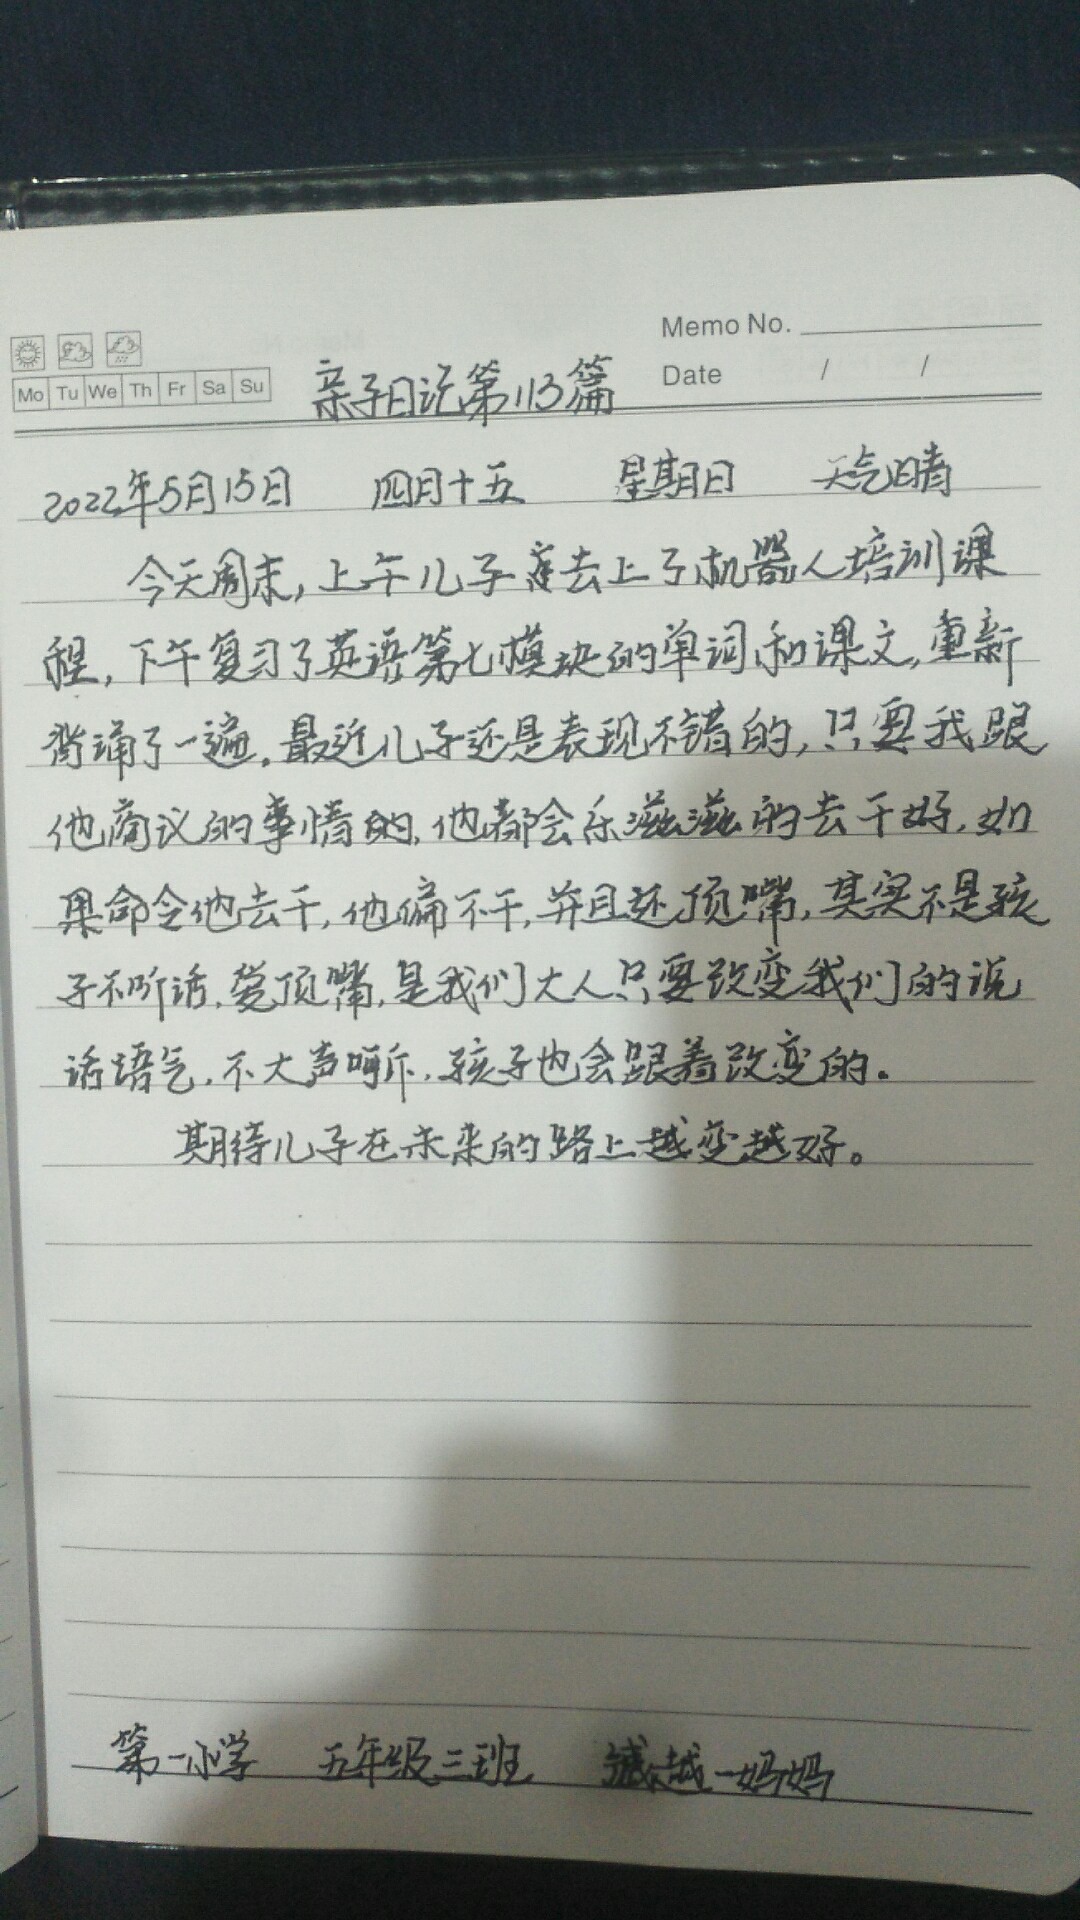 Memo No.
Mo Tu We Th Fr Sa Su
Date / /
亲子日记第113篇
2022年5月15日 四月十五 星期日 天气晴
今天周末,上午儿子去上了机器人培训课
程,下午复习了英语第七模块的单词和课文,重新
背诵了一遍。最近儿子还是表现不错的,只要我跟
他商议的事情的,他都会乐滋滋的去干好,如
果命令他去干,他偏不干,并且还顶嘴,其实不是孩
子不听话,爱顶嘴,是我们大人只要改变我们的说
话语气,不大声呵斥,孩子也会跟着改变的。
期待儿子在未来的路上越变越好。
第一小学 五年级三班 越一妈妈